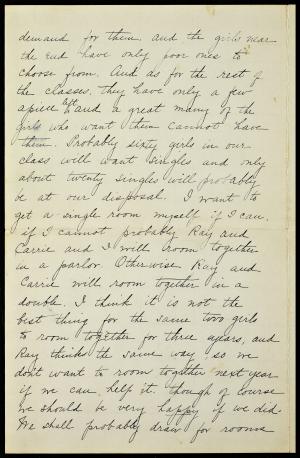 demand for them. and the girls near
the end have only poor ones to
choose from. And as for the rest of
the classes. they have only a few
apiece left and a great many of the
girls who want them cannot have
them. Probably sixty girls in our
class will want singles and only
about twenty singles will probably
be at our disposal. I want to
get a single room myself if I can.
if I cannot probably Ray and
Carrie and I will room together
in a parlor. Otherwise Ray and
Carrie will room together in a
double. I think it is not the
best thing for the same two girls
to room together for three years, and
Ray thinks the same way, so we
dont want to room together next year
if we can help it. though of course
we should be very happy if we did.
We shall probably draw for rooms